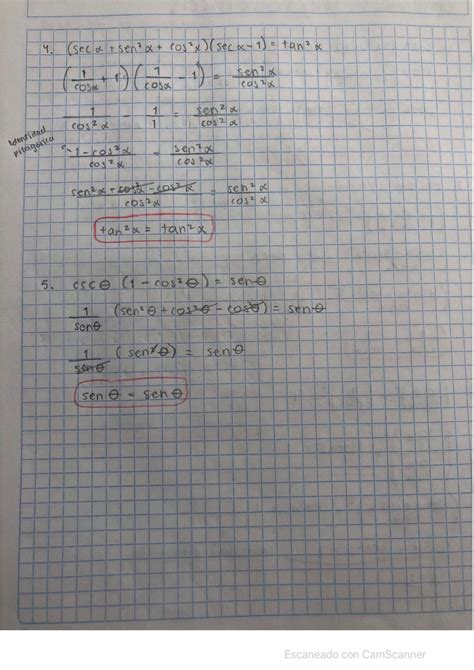 4. (sec α + sen²α + cos²α)(sec α - 1) = tan²α
(1/cosα + 1)(1/cosα - 1) = sen²α/cos²α
1/cos²α - 1/1 = sen²α/cos²α
Identidad pitagórica
1 - cos²α/cos²α = sen²α/cos²α
sen²α + cos²α - cos²α/cos²α = sen²α/cos²α
tan²α = tan²α
5. cscθ (1 - cos²θ) = senθ
1/senθ (sen²θ + cos²θ - cos²θ) = senθ
1/senθ (sen²θ) = senθ
senθ = senθ
Escaneado con CamScanner